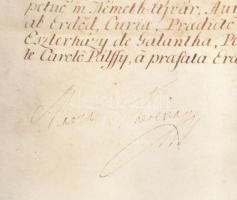 petuo in Németh-Ujvár, Aur
ab Erdőd, Curiæ, Prædicto
Eszterházy de Galantha, Pe
te Carolo Pálffy, à præfata Erd
Maria Theresia